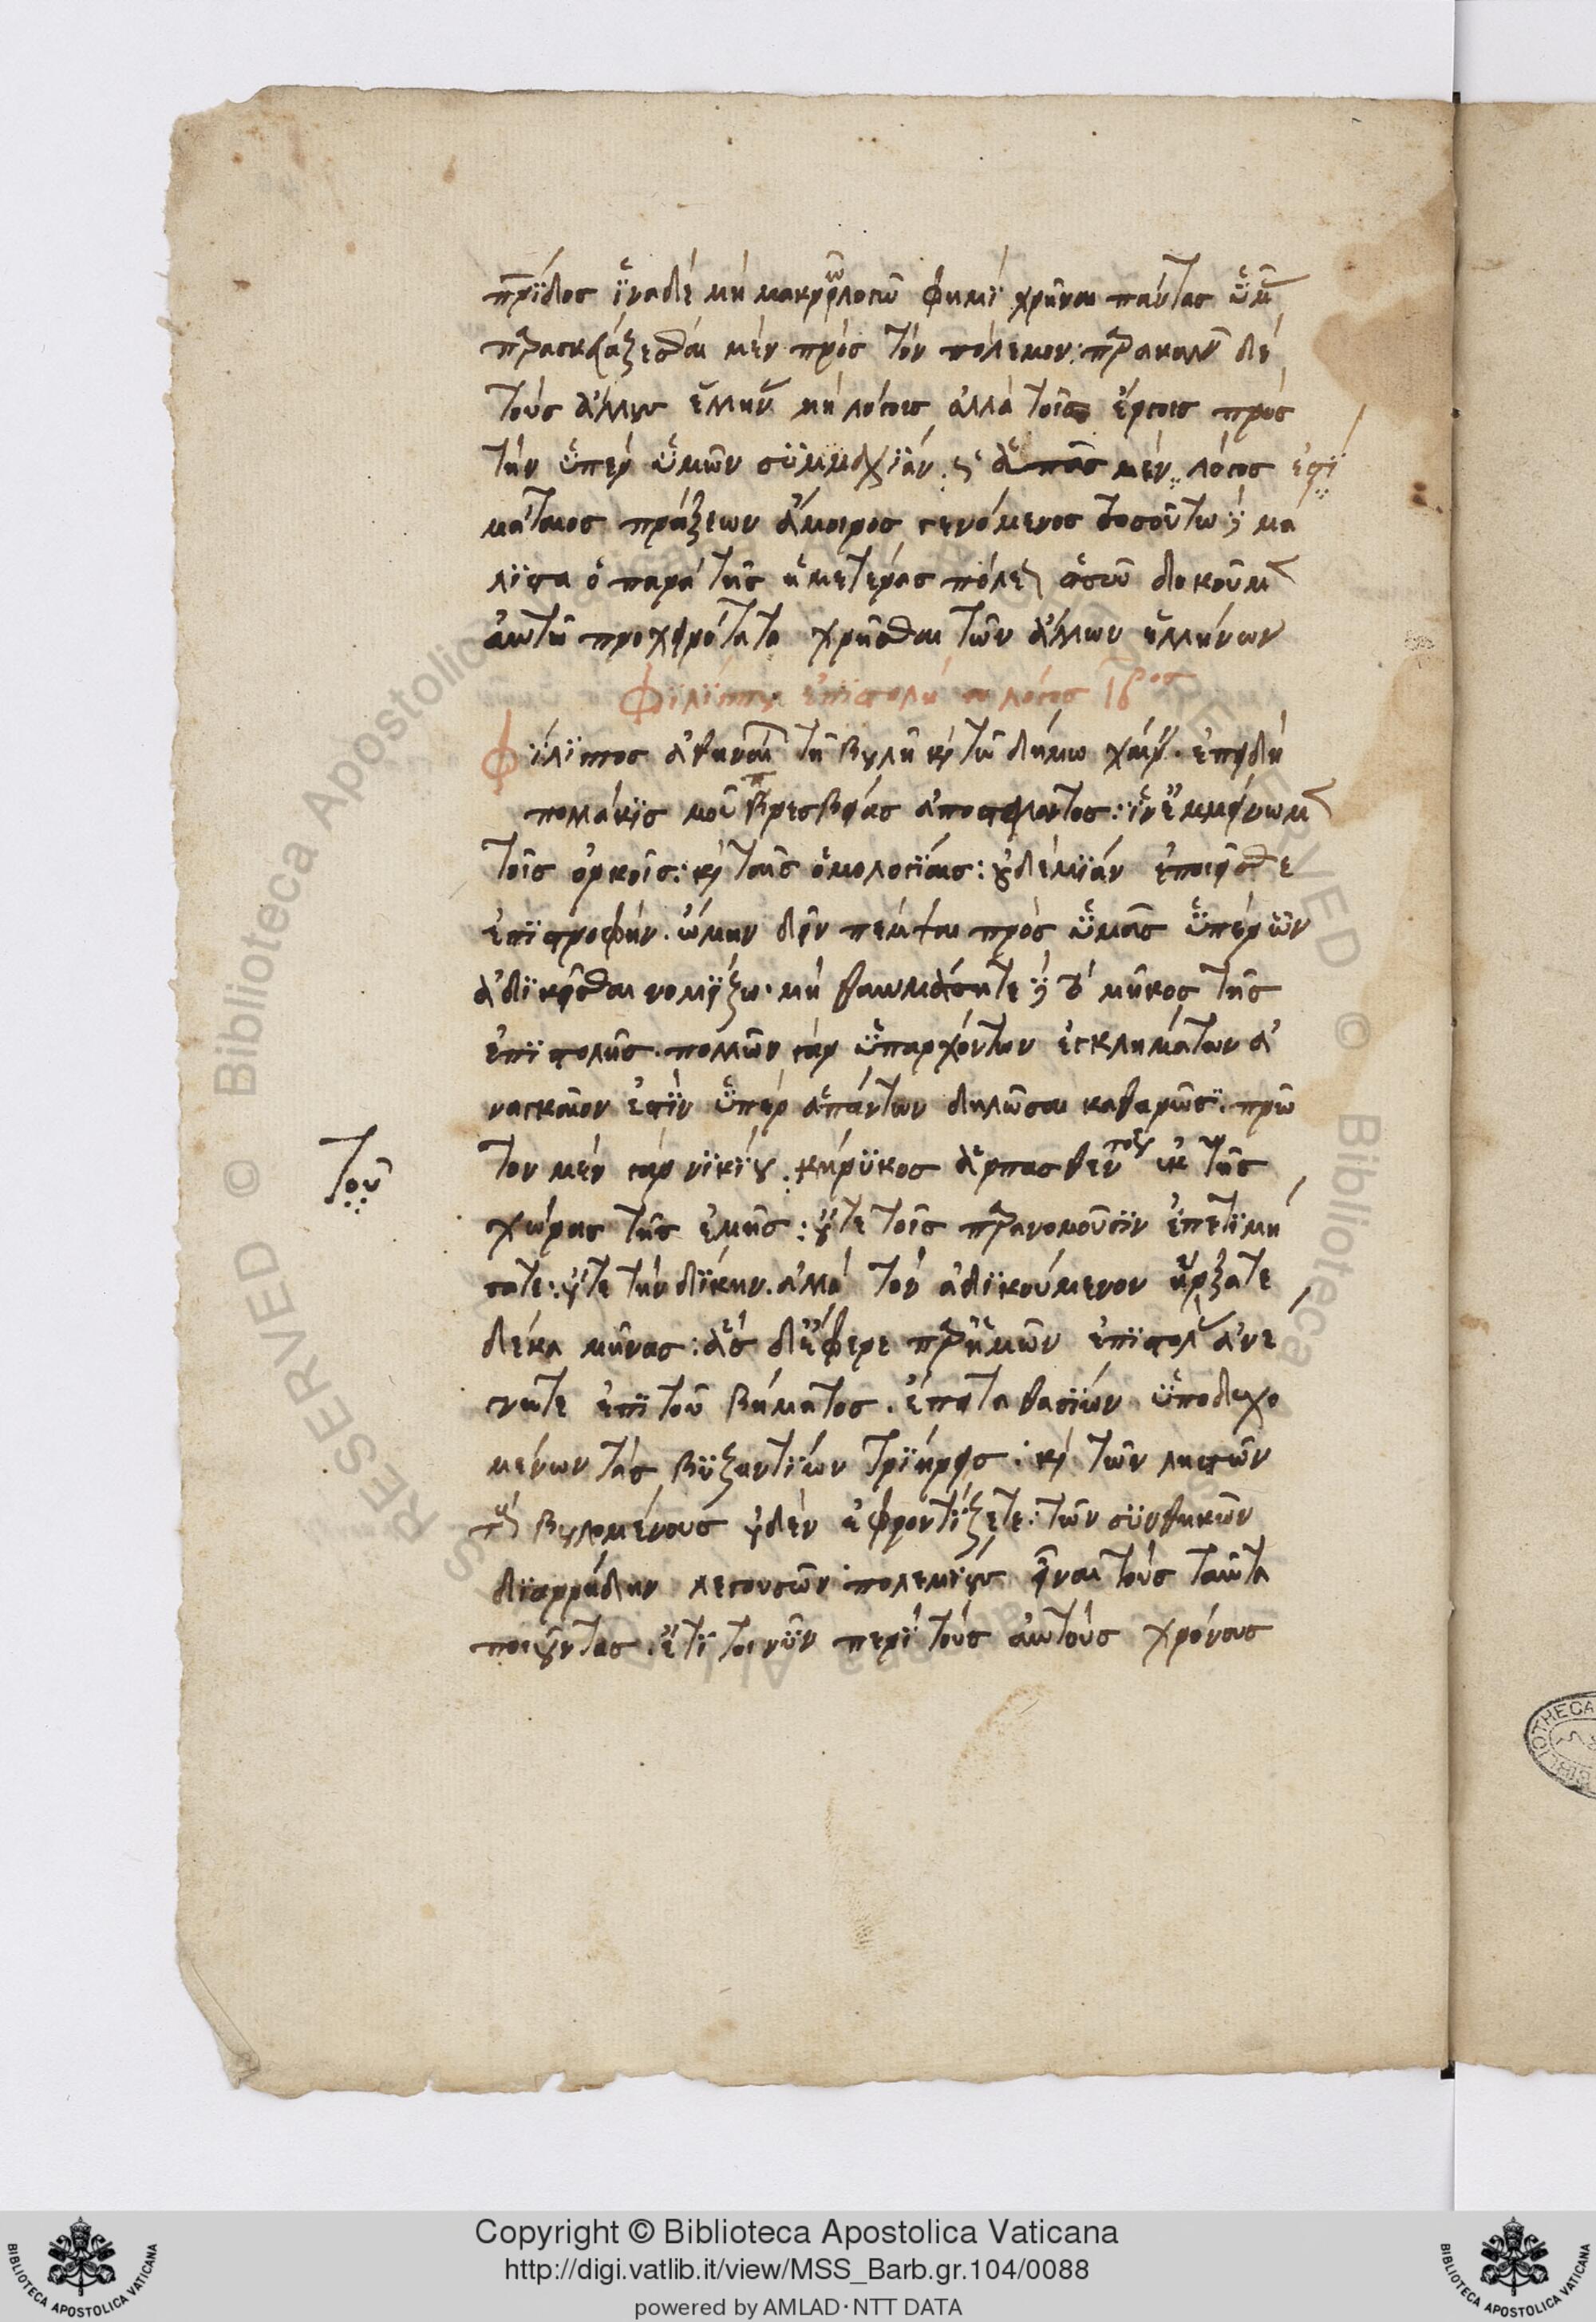 πρ̅ίδος ἵνα δὲ μὴ μακρολογῶ φημὶ χρῆναι πάντας ὑμ
παρασκευάζεσθαι μὲν πρὸς τὸν πόλεμον: παρακαλεῖν δὲ
τοὺς ἄλλους ἕλλην μὴ λόγοις ἀλλὰ τοῖς ἔργοις πρὸς
τὴν ὑπὲρ ὑμῶν συμμαχίαν. ς ἅπας μέν λόγος ἐστὶ
μάταιος πράξεων ἄμοιρος γενόμενος τοσούτω δὲ μά
λιστα ὁ παρὰ τῆς ἡμετέρας πόλε ὅσω δοκοῦμ
αὐτῆ προχειρότατα χρῆσθαι τῶν ἄλλων ἑλλήνων
Φιλίππου ἐπιστολὴ λόγος ιβος
Φίλιππος ἀθηναί τῆ βουλῆ κ τῶ δήμω χαίρ. ἐπειδὴ
πολλάκις μοῦ πρεσβείας ἀποστείλαντος: ἵν ἐμμείνωμ
τοῖς ὁρκοῖς: κ ταῖς ὁμολογίαις: οὐδεμίαν ἐποιεῖσθε
ἐπιστροφήν. ὤμην δεῖν πέμψαι πρὸς ὑμᾶς ὑπὲρ ὧν
ἀδικεῖσθαι νομίζω. μὴ θαυμάσητε δὲ τὸ μῆκος τῆς
ἐπιστολῆς. πολλῶν γὰρ ὑπαρχόντων ἐγκλημάτων ἀ
ναγκαῖον ἐστὶν ὑπὲρ ἁπάντων δηλῶσαι καθαρῶσ. πρῶ
τον μὲν γὰρ νικίου. κήρυκος ἁρπασθέντος ἐκ τῆς
τοῦ
χώρας τῆς ἐμῆς: οὔτε τοῖς παρανομοῦσιν ἐπετιμή
σατε: οὔτε τὴν δίκην. ἀλλὰ τὸν ἀδικούμενον ἥρξατε
δέκα μῆνας: ἃς δ ἔφερε παρ ἡμῶν ἐπιστολ ἀνέ
γνωτε ἐπὶ τοῦ βήματος. ἔπειτα θασίων ὑποδεχο
μένων τὰς βυζαντίων τριήρεις. κ τῶν ληστῶν
τ βουλομένους οὐδὲν ἐφροντίζετε: τῶν συνθηκῶν
διαρρήδην λεγουσῶν πολεμίους εἶναι τοὺς ταῦτα
ποιοῦντας. ἔτι τοινῦν περὶ τοὺς αὐτοὺς χρόνους
BIBLIOTECA APOSTOLICA VATICANA
Copyright © Biblioteca Apostolica Vaticana
http://digi.vatlib.it/view/MSS_Barb.gr.104/0088
powered by AMLAD · NTT DATA
BIBLIOTECA APOSTOLICA VATICANA